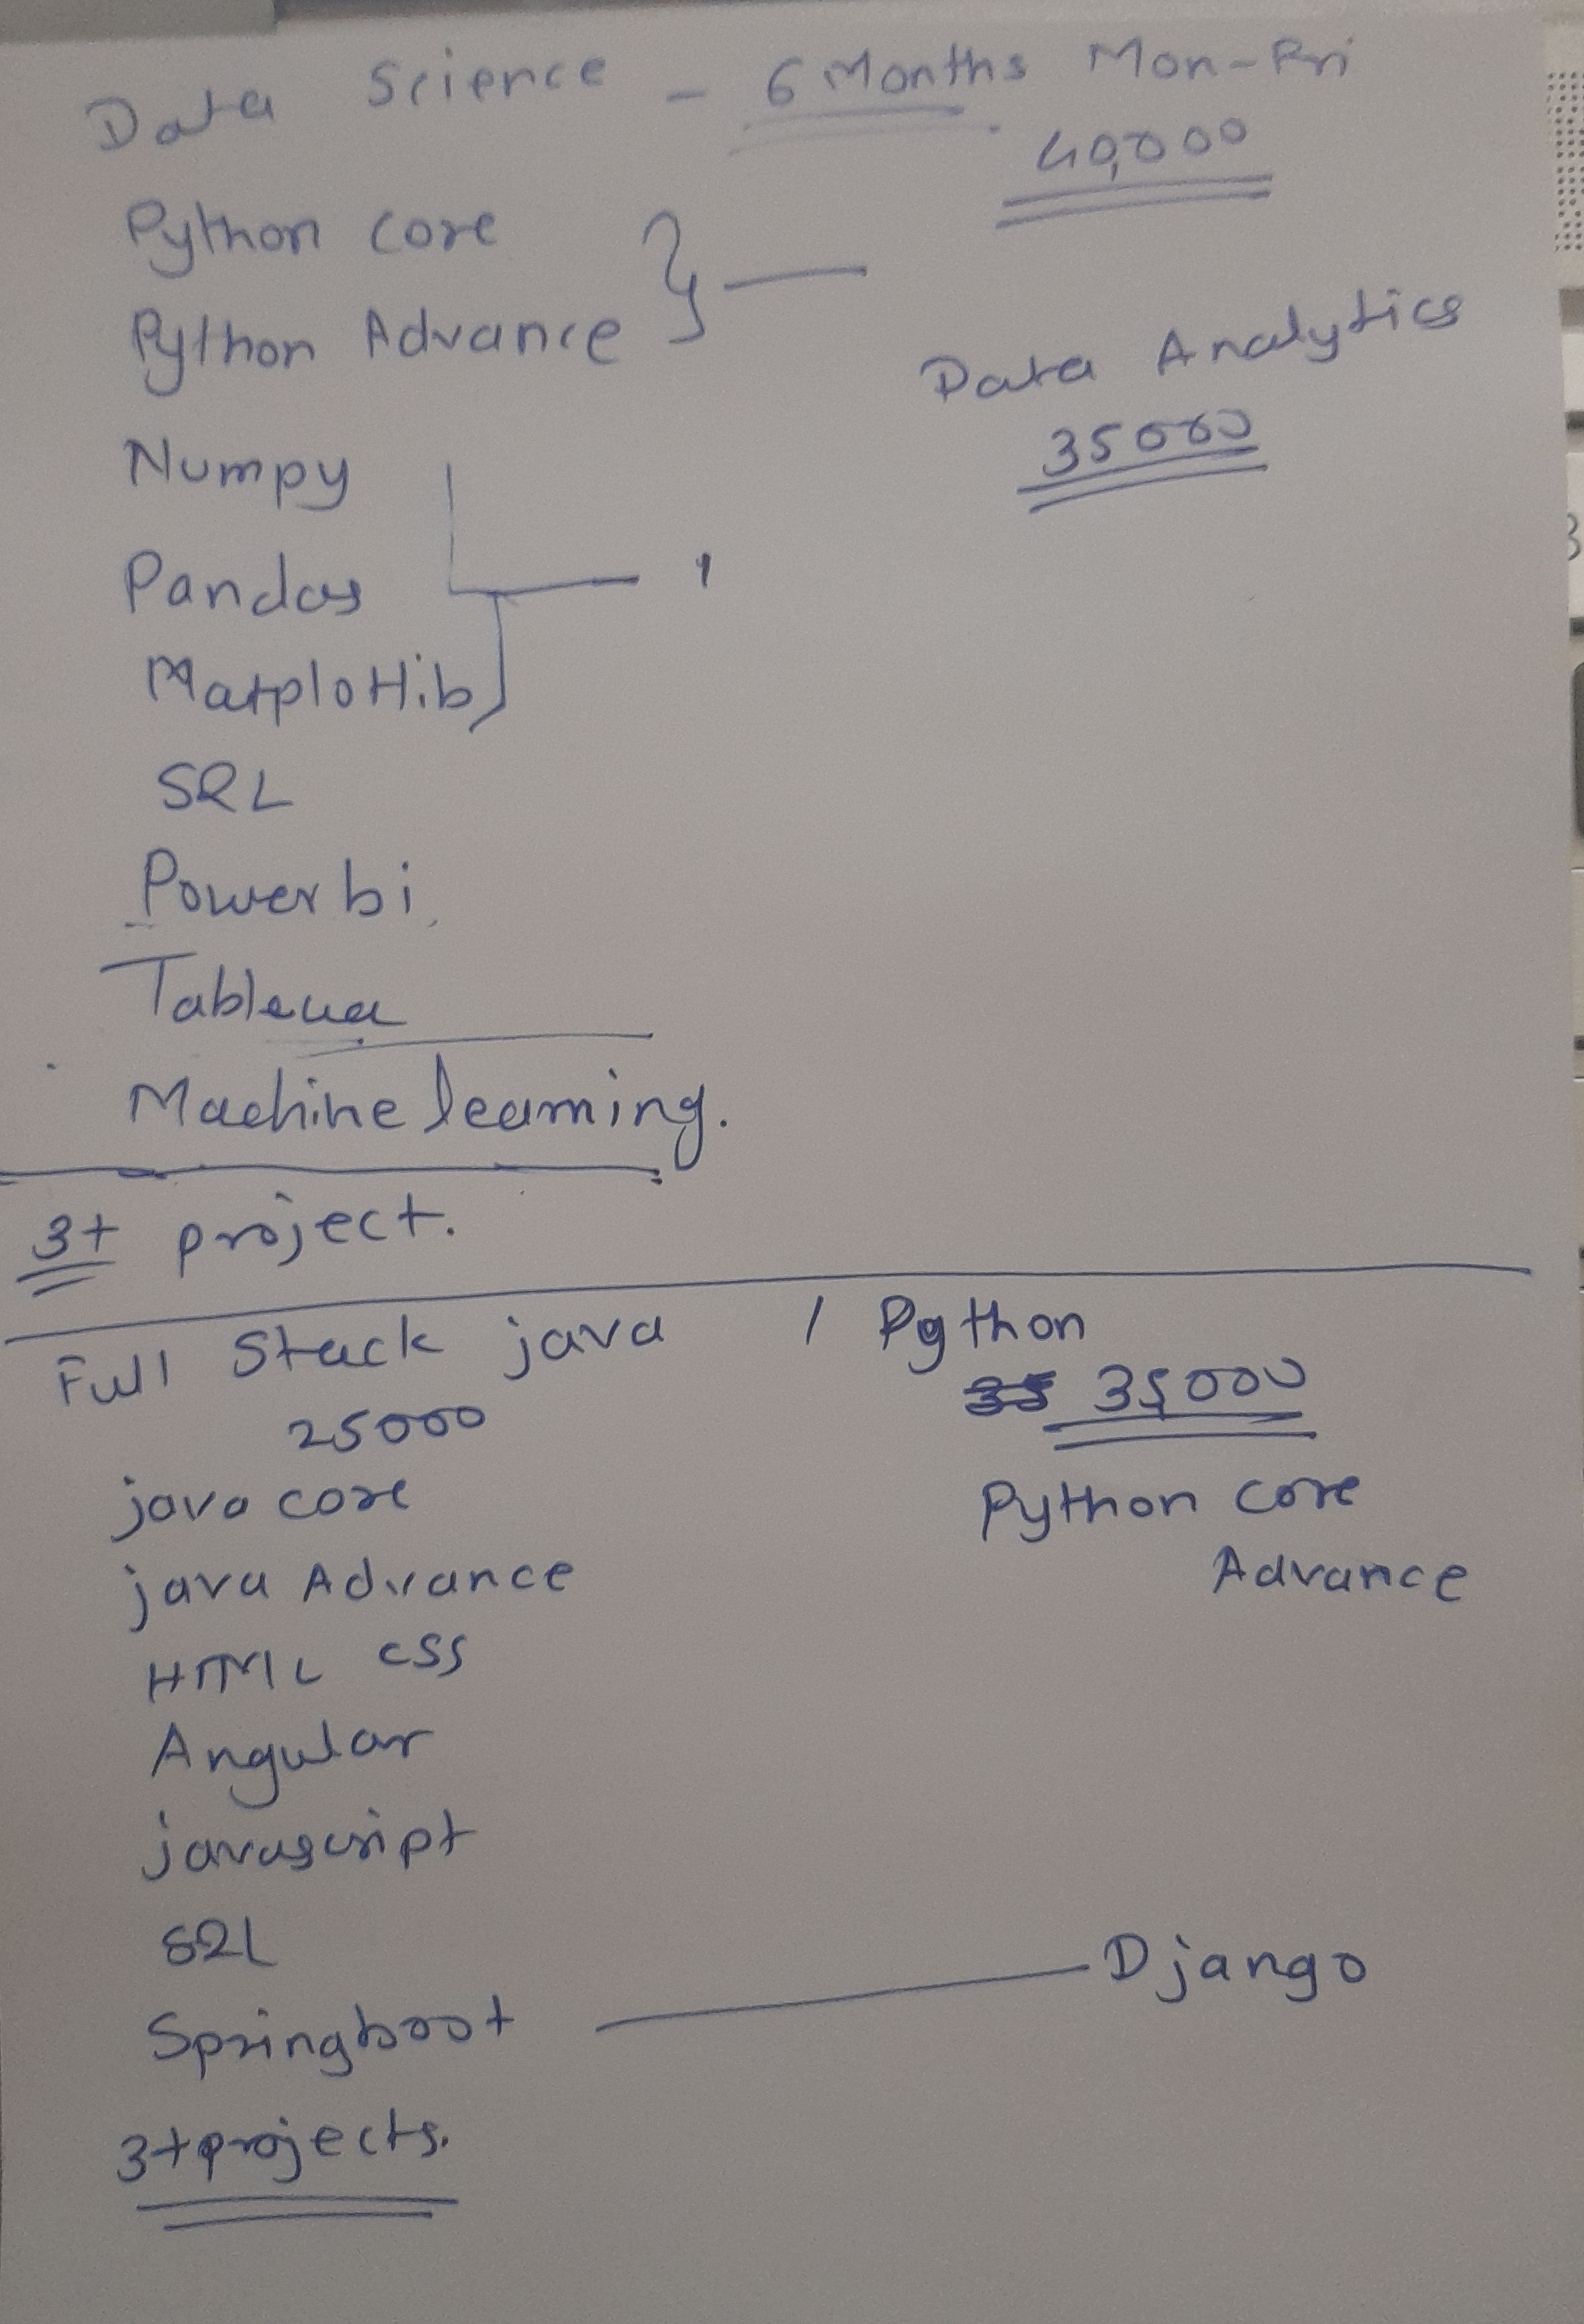 Data Science - 6 Months Mon-Fri
40,000
Python core
Python Advance
Data Analytics
35000
Numpy
Pandas
Matplotlib
SQL
Powerbi
Tableua
Machine learning.
3+ project.
Full Stack java / Python
25000
35,000
java core
Python core
java Advance
Advance
HTML CSS
Angular
javascript
SQL
Springboot — Django
3+projects.